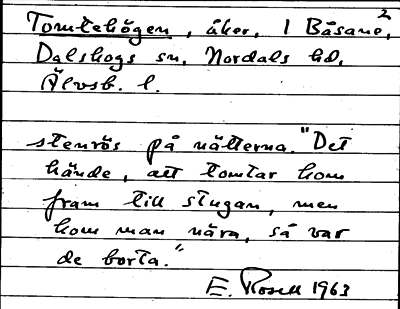 Tomtehögen, åker, 1 Båsane,²
Dalskogs sn, Nordals hd,
Älvsb. l.
stenrös på nätterna. "Det
hände, att tomtar kom
fram till stugan, men
kom man nära, så var
de borta."
E. Rosell 1963